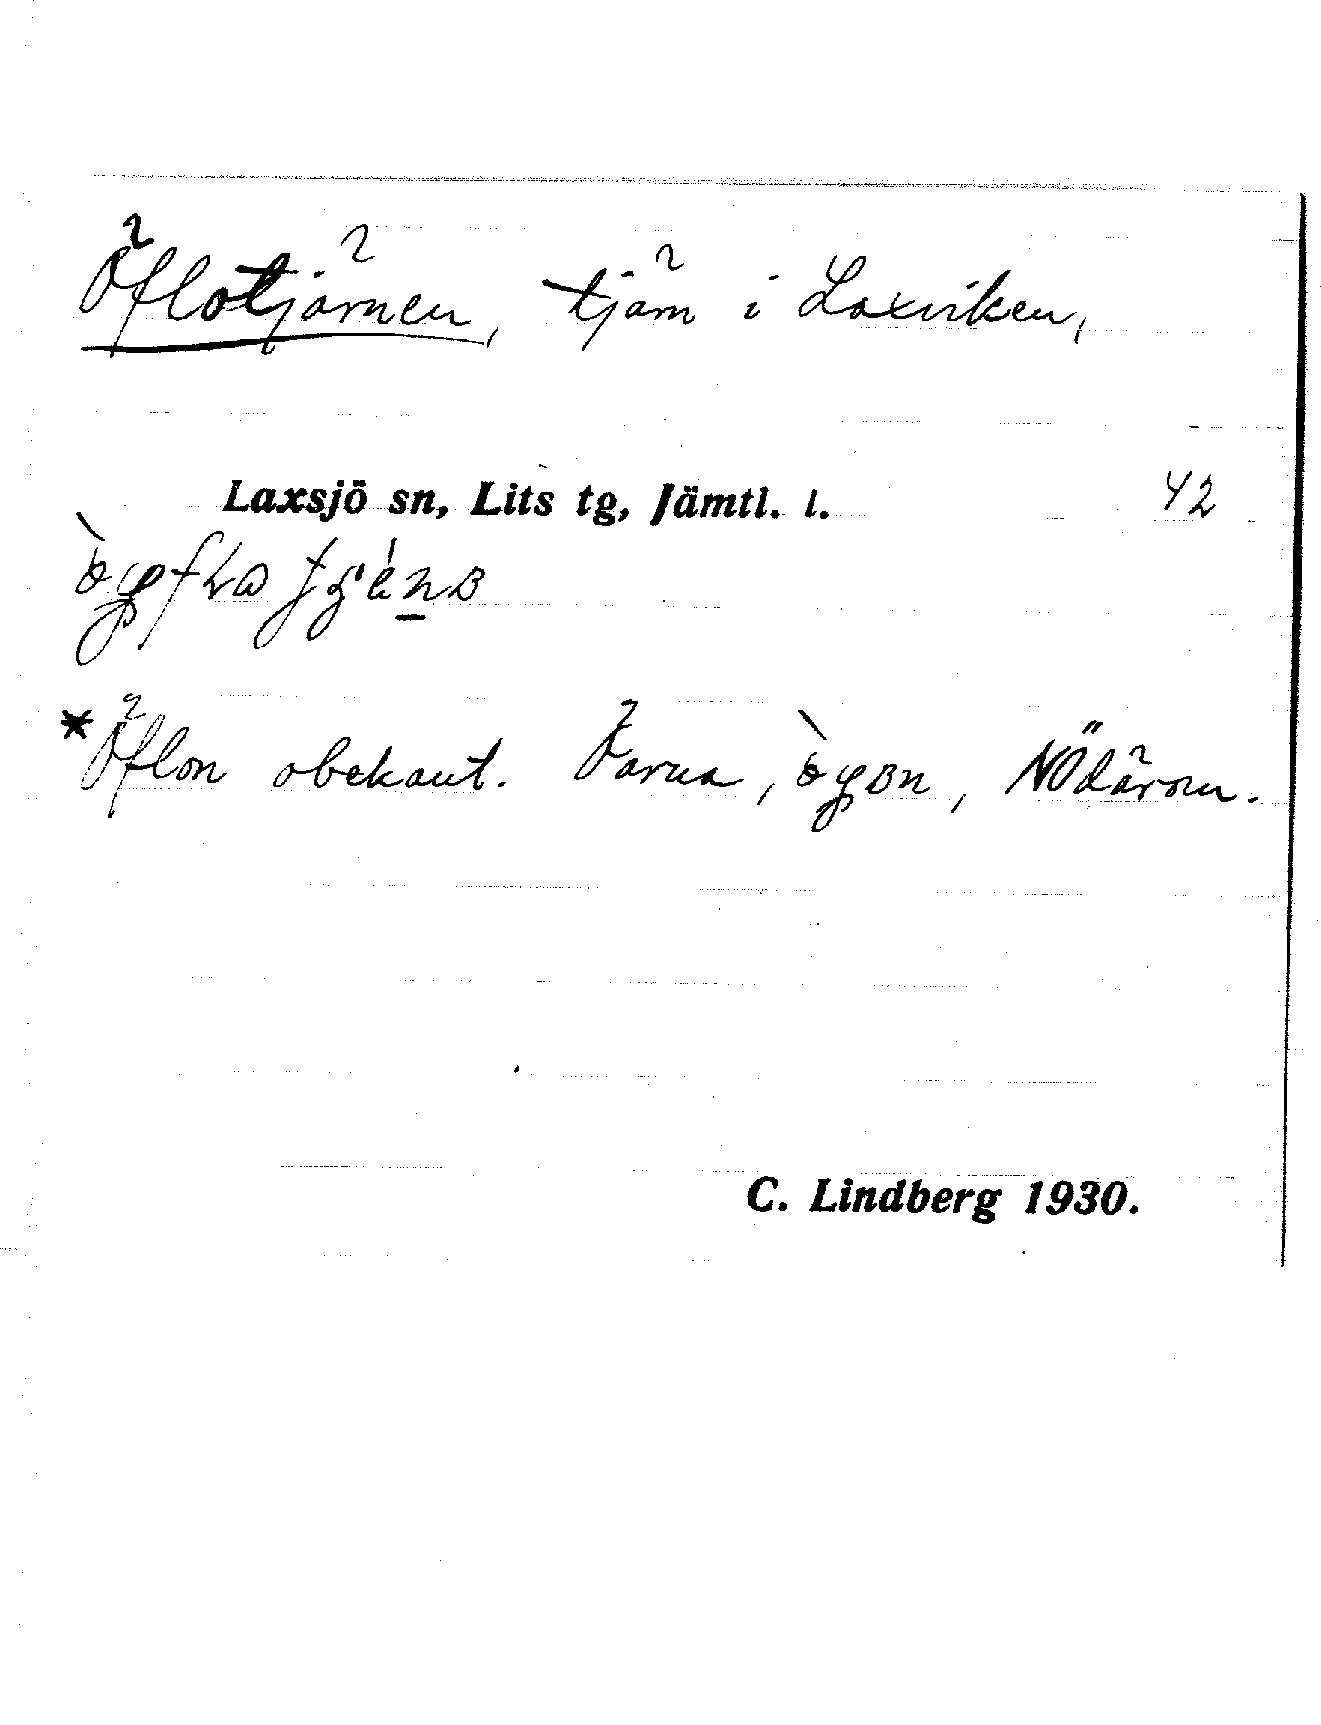 Öflotjärnen, tjärn i Laxviken,
Laxsjö sn, Lits tg, Jämtl. l. 42
*Öflon obekant. Öarna, NÖ därom.
C. Lindberg 1930.